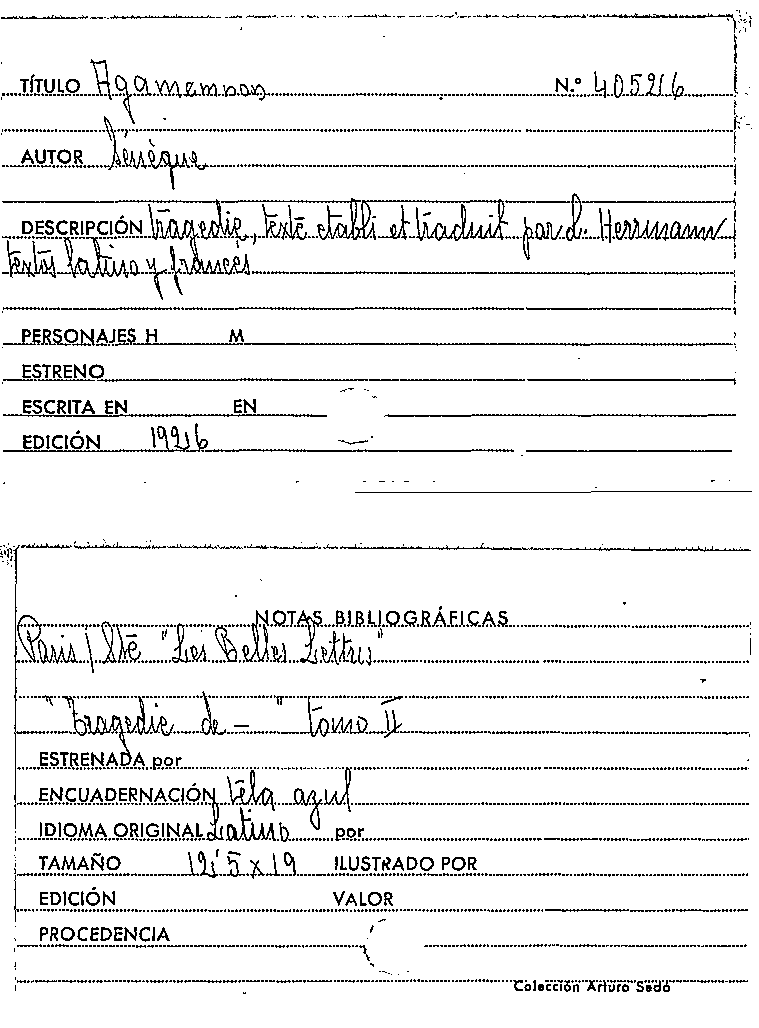 TÍTULO Agamemnon N.º 40526
AUTOR Sénèque
DESCRIPCIÓN tragedie, texte etabli et traduit par L. Herrmann
textos latino y francés
PERSONAJES H M
ESTRENO
ESCRITA EN EN
EDICIÓN 1926
NOTAS BIBLIOGRÁFICAS
Paris / Sté "Les Belles Lettres"
"tragedie de — " tomo II
ESTRENADA por
ENCUADERNACIÓN tela azul
IDIOMA ORIGINAL Latino por
TAMAÑO 12'5 x 19 ILUSTRADO POR
EDICIÓN VALOR
PROCEDENCIA
Colección Arturo Sedó